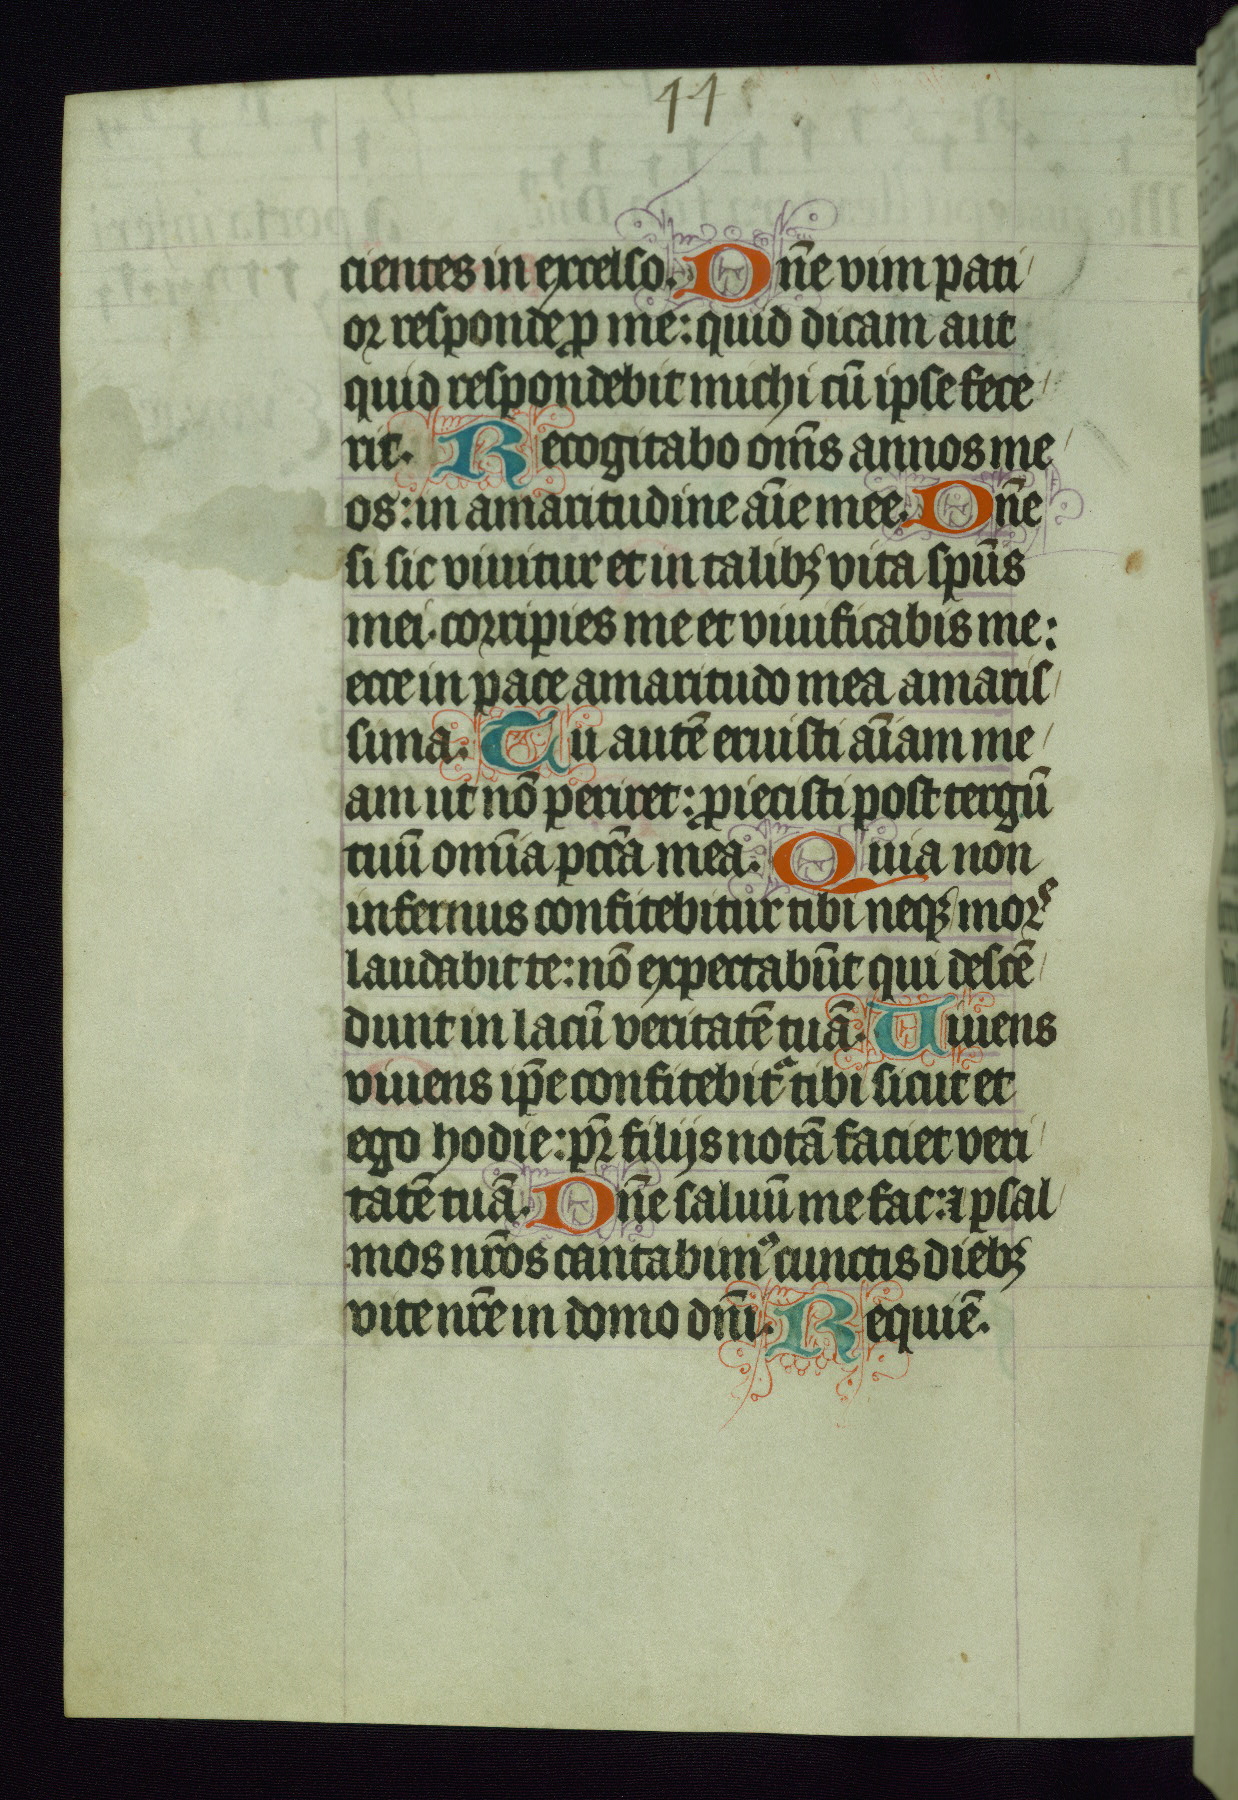 11
cientes in excelso. Dñe vim pati
or responde ꝓ me: quid dicam aut
quid respondebit michi cū ipse fece
rit. Recogitabo om̄s annos me
os: in amaritudine aīe mee. Dñe
si sic viuitur et in talibꝫ vita spūs
mei. corripies me et viuificabis me:
ecce in pace amaritudo mea amaris
sima. Tu autē eruisti aīam me
am ut nō periret: ꝓiecisti post tergū
tuū omīa pctā mea. Quia non
infernus confitebitur tibi neqꝫ mors
laudabit te: nō expectabūt qui descē
dunt in lacū veritatē tuā. Viuens
viuens ip̄e confitebit᷑ tibi sicut et
ego hodie: pr̄ filijs notā faciet veri
tatē tuā. Dñe saluū me fac: ⁊ psal
mos nr̄os cantabimꝰ cunctis diebꝫ
vite nr̄e in domo dñi. Requiē.